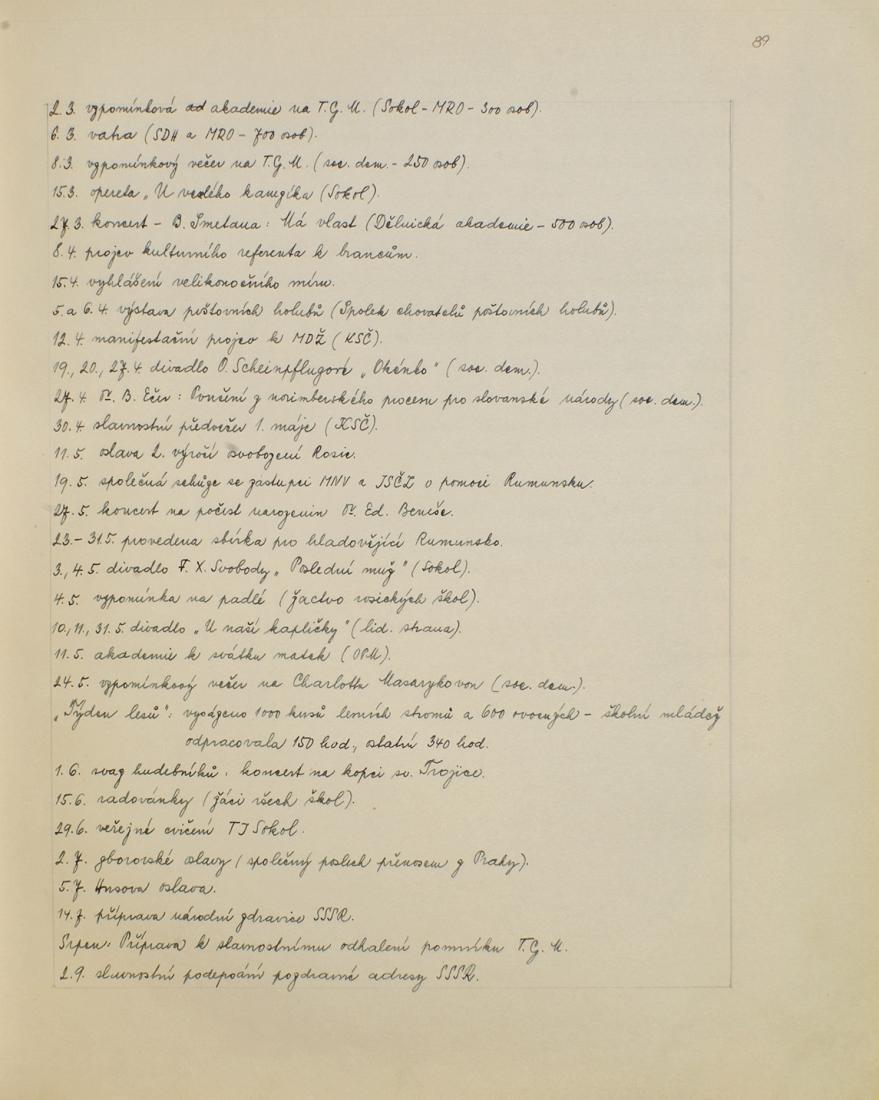 89
2.3. vzpomínková ad akademie na T.G.M. (Sokol - MRO - 300 osob).
6.3. vatra (SDH a MRO - 700 osob).
8.3. vzpomínkový večer na T.G.M. (soc. dem. - 250 osob).
15.3. opereta „U veselého kanýrka (Sokol).
27.3. koncert - B. Smetana: Má vlast (Dělnická akademie - 500 osob).
8.4. projev kulturního referenta k brancům.
15.4. vyhlášení velikonočního míru.
5. a 6.4. výstava poštovních holubů (Spolek chovatelů poštovních holubů).
12.4. manifestační projev k MDŽ (KSČ).
19., 20., 27.4. divadlo O. Scheinpflugové „Okénko" (soc. dem.).
27.4. Dr. B. Ečer: Poučení z norimberského procesu pro slovanské národy (soc. dem.).
30.4. slavnostní předvečer 1. máje (KSČ).
11.5. oslava 2. výročí osvobození Rosic.
19.5. společná schůze se zástupci MNV a JSČZ o pomoci Rumunsku.
27.5. koncert na počest narozenin Dr. Ed. Beneše.
23. - 31.5. provedena sbírka pro hladovějící Rumunsko.
3., 4.5. divadlo F. X. Svobody „Poslední muž" (Sokol).
4.5. vzpomínka na padlé (žactvo rosických škol).
10., 11., 31.5. divadlo „U naší kapličky" (lid. strana).
11.5. akademie k svátku matek (OPM).
24.5. vzpomínkový večer na Charlottu Masarykovou (soc. dem.).
„Týden lesů": vysázeno 1000 kusů lesních stromů a 600 ovocných - školní mládež
odpracovala 150 hod., ostatní 340 hod.
1.6. svaz hudebníků: koncert na kopci sv. Trojice.
15.6. radovánky (žáci všech škol).
29.6. veřejné cvičení TJ Sokol.
2.7. zborovské oslavy (společný poslech přenosem z Prahy).
5.7. Husova oslava.
14.7. příprava národní zdravice SSSR.
Srpen: Příprava k slavnostnímu odhalení pomníku T.G.M.
2.9. slavnostní podepsání pozdravné adresy SSSR.